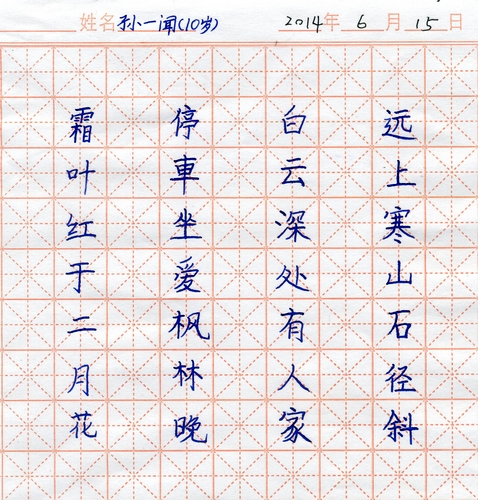 姓名 孙一闻(10岁) 2014年 6月 15日
远上寒山石径斜
白云深处有人家
停車坐爱枫林晚
霜叶红于二月花